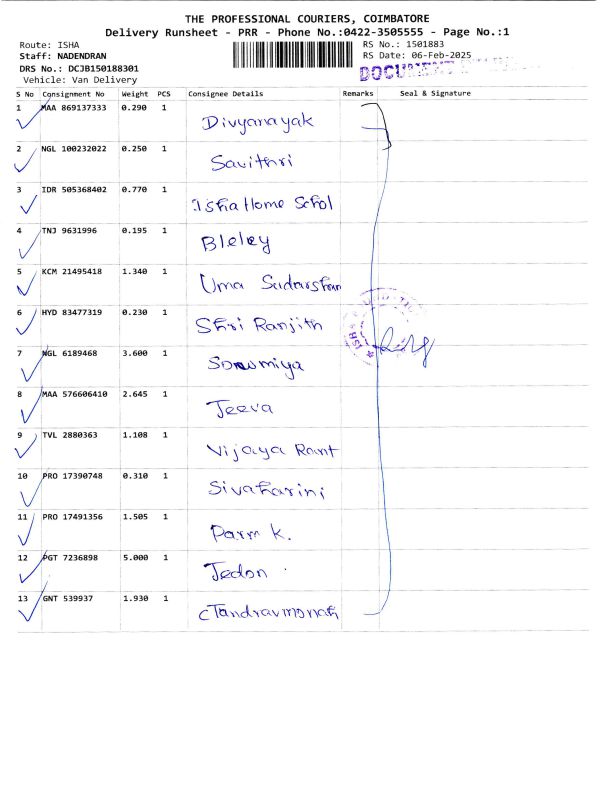 THE PROFESSIONAL COURIERS, COIMBATORE
Delivery Runsheet - PRR - Phone No.:0422-3505555 - Page No.:1
Route: ISHA
RS No.: 1501883
Staff: NADENDRAN
RS Date: 06-Feb-2025
DRS No.: DCJB150188301
DOCUMENT
Vehicle: Van Delivery
S No Consignment No Weight PCS Consignee Details Remarks Seal & Signature
1 MAA 869137333 0.290 1 Divyanayak
2 NGL 100232022 0.250 1 Savithri
3 IDR 505368402 0.770 1 Isha Home Schol
4 TNJ 9631996 0.195 1 Bleley
5 KCM 21495418 1.340 1 Uma Sudarshan
6 HYD 83477319 0.230 1 Shri Ranjith
7 NGL 6189468 3.600 1 Sowmiya
8 MAA 576606410 2.645 1 Jeeva
9 TVL 2880363 1.108 1 Vijaya Rant
10 PRO 17390748 0.310 1 Sivaharini
11 PRO 17491356 1.505 1 Parm K.
12 PGT 7236898 5.000 1 Jedon
13 GNT 539937 1.930 1